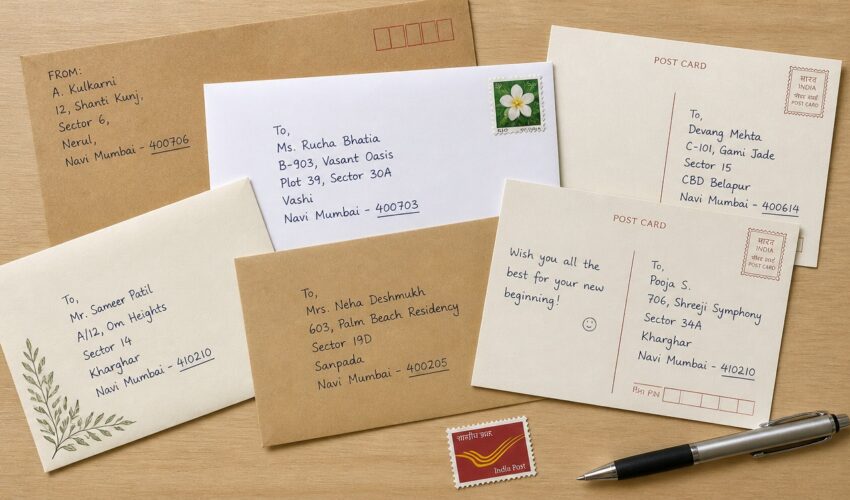 FROM:
A. Kulkarni
12, Shanti Kunj,
Sector 6,
Nerul,
Navi Mumbai - 400706
To,
Ms. Rucha Bhatia
B-903, Vasant Oasis
Plot 39, Sector 30A
Vashi
Navi Mumbai - 400703
POST CARD
भारत
INDIA
POST CARD
To,
Devang Mehta
C-101, Gami Jade
Sector 15
CBD Belapur
Navi Mumbai - 400614
To,
Mr. Sameer Patil
A/12, Om Heights
Sector 14
Kharghar
Navi Mumbai - 410210
To,
Mrs. Neha Deshmukh
603, Palm Beach Residency
Sector 19D
Sanpada
Navi Mumbai - 400205
POST CARD
भारत
INDIA
POST CARD
Wish you all the
best for your new
beginning!
To,
Pooja S.
706, Shreeji Symphony
Sector 34A
Kharghar
Navi Mumbai - 410210
PIN
India Post